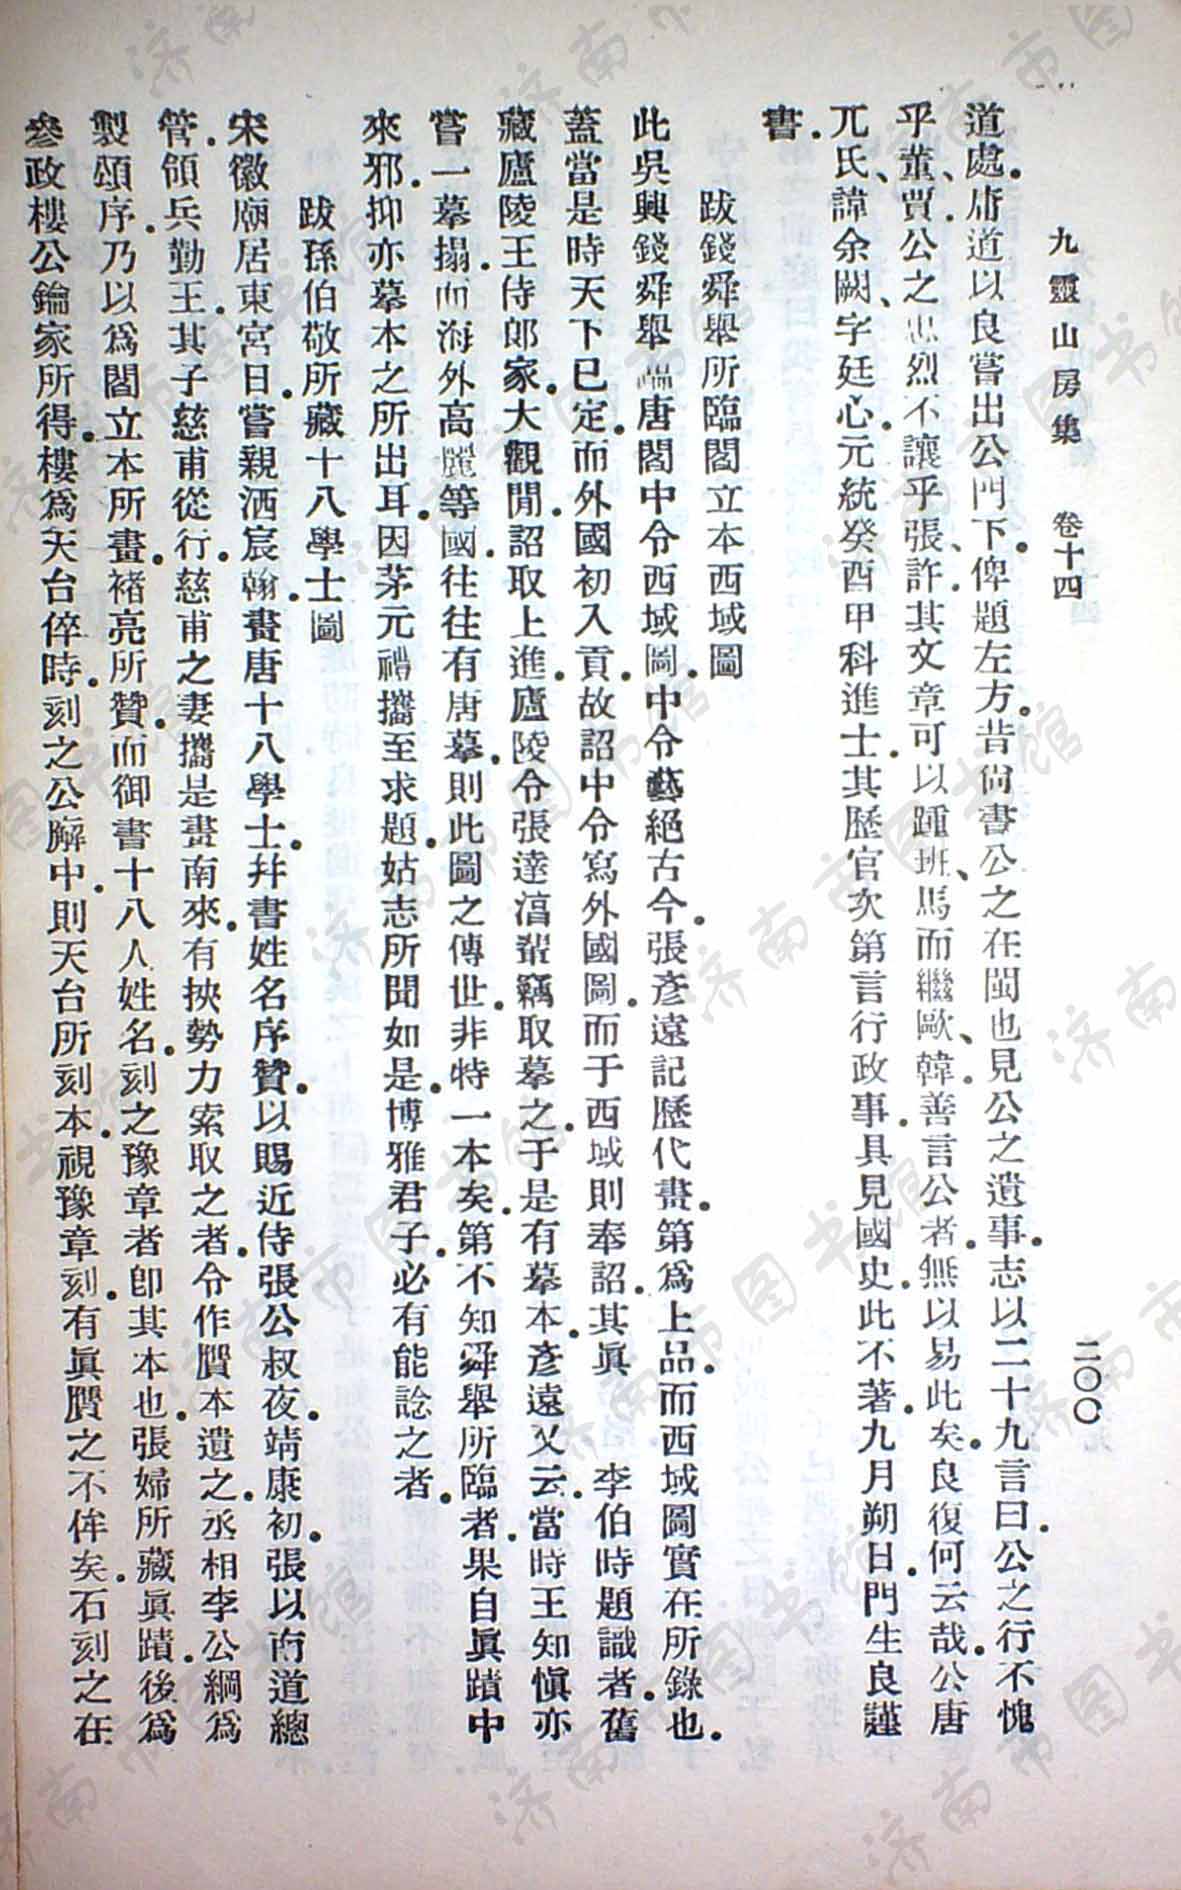 九靈山房集 卷十四 二〇〇
道處.庸道以良嘗出公門下.俾題左方.昔尙書公之在閩也見公之遺事.志以二十九言曰.公之行不愧
乎董、賈.公之忠烈不讓乎張、許.其文章可以踵班、馬而繼歐、韓.善言公者.無以易此矣.良復何云哉.公唐
兀氏、諱余闕、字廷心.元統癸酉甲科進士.其歷官次第言行政事.具見國史.此不著.九月朔日.門生良謹
書.
跋錢舜舉所臨閻立本西域圖
此吳興錢舜舉臨唐閻中令西域圖.中令藝絕古今.張彥遠記歷代畫.第爲上品.而西域圖實在所錄也.
蓋當是時天下已定.而外國初入貢.故詔中令寫外國圖.而于西域則奉詔.其眞 李伯時題識者.舊
藏廬陵王侍郞家.大觀閒.詔取上進.廬陵令張達淯輩竊取摹之.于是有摹本.彥遠又云.當時王知愼亦
嘗一摹搨.而海外高麗等國.往往有唐摹.則此圖之傳世.非特一本矣.第不知舜舉所臨者.果自眞蹟中
來邪.抑亦摹本之所出耳.因茅元禮攜至求題.姑志所聞如是.博雅君子.必有能諗之者.
跋孫伯敬所藏十八學士圖
宋徽廟居東宮日.嘗親洒宸翰.畫唐十八學士.幷書姓名序贊.以賜近侍張公叔夜.靖康初.張以南道總
管.領兵勤王.其子慈甫從行.慈甫之妻攜是畫南來.有挾勢力索取之者.令作贋本遺之.丞相李公綱爲
製頌序.乃以爲閻立本所畫.褚亮所贊.而御書十八人姓名.刻之豫章者.卽其本也.張婦所藏眞蹟.後爲
參政樓公鑰家所得.樓爲天台倅時.刻之公廨中.則天台所刻本.視豫章刻.有眞贋之不侔矣.石刻之在